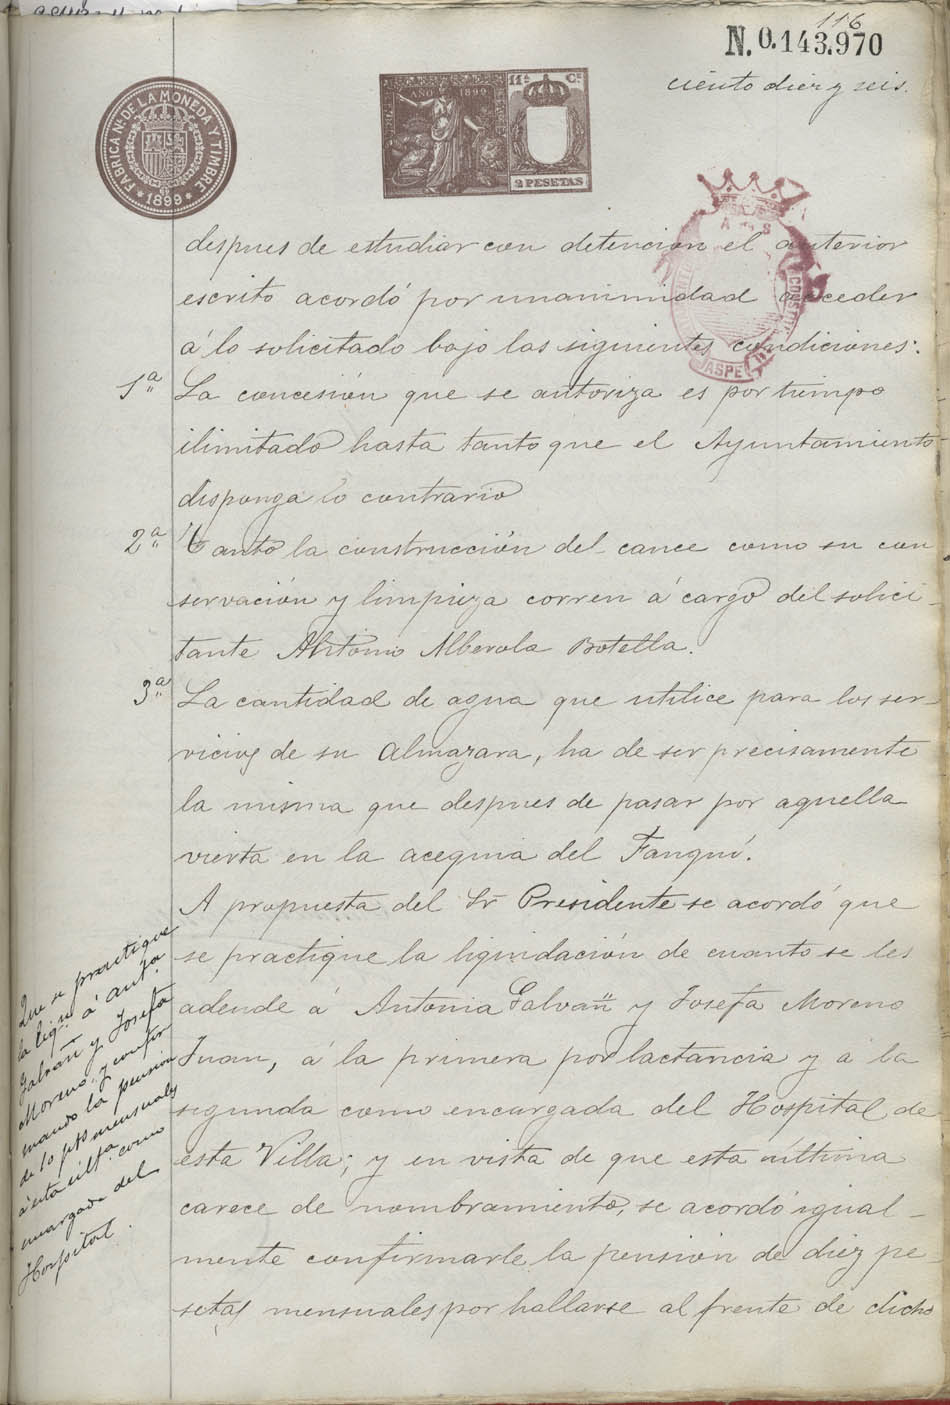 116
N. 0.143.970
ciento diez y seis.
FABRICA Nal. DE LA MONEDA Y TIMBRE
* 1899 *
AÑO 1899
11ª Cª
2 PESETAS
ASPE
despues de estudiar con detencion el anterior
escrito acordó por unanimidad acceder
á lo solicitado bajo las siguientes condiciones:
1ª La concesión que se autoriza es por tiempo
ilimitado hasta tanto que el Ayuntamiento
disponga lo contrario
2ª Tanto la construcción del cauce como su con
servación y limpieza corren á cargo del solici-
tante Antonio Alberola Botella.
3ª La cantidad de agua que utilice para los ser-
vicios de su Almazara, ha de ser precisamente
la misma que despues de pasar por aquella
vierta en la acequia del Fanquí.
A propuesta del Sr Presidente se acordó que
se practique la liquidación de cuanto se les
adeude á Antonia Galvañ y Josefa Moreno
Juan, á la primera por lactancia y á la
segunda como encargada del Hospital de
esta Villa; y en vista de que esta última
carece de nombramiento, se acordó igual-
mente confirmarle la pensión de diez pe-
setas mensuales por hallarse al frente de dicho
Que se practique
la liqn. á Anta.
Galvañ y Josefa
Moreno, y confir
mando la pensión
de 10 ptas mensuales
á esta última como
encargada del
Hospital.